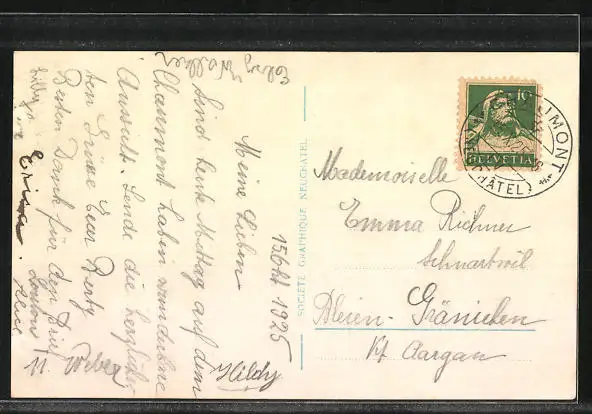 15 Okt 1925
Meine Lieben
Sind heute Mittag auf dem
Chaumont haben wunderbare
Aussicht. Sende die herzlich
ten Grüße Euer Berty
Besten Dank für den Brief
Hildy
Erina
H. Weber
Walther
SOCIÉTÉ GRAPHIQUE NEUCHATEL
10
HELVETIA
UMONT
CHÂTEL)
Mademoiselle
Emma Richner
Bleien - Gränichen
Kt Aargau